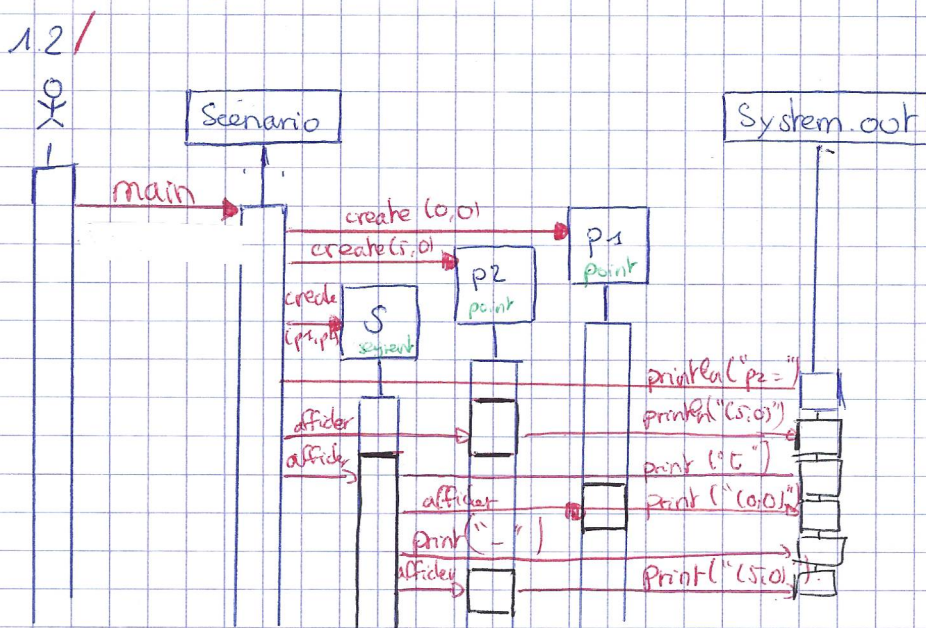 1.2/
Scenario
System.out
main
create (0,0)
p1
point
create(5,0)
p2
point
create
(p1,p2)
S
segment
println("p2=")
afficher
println("(5,0)")
afficher
print ("[")
afficher
print ("(0,0)")
print("_")
afficher
print("(5,0)")